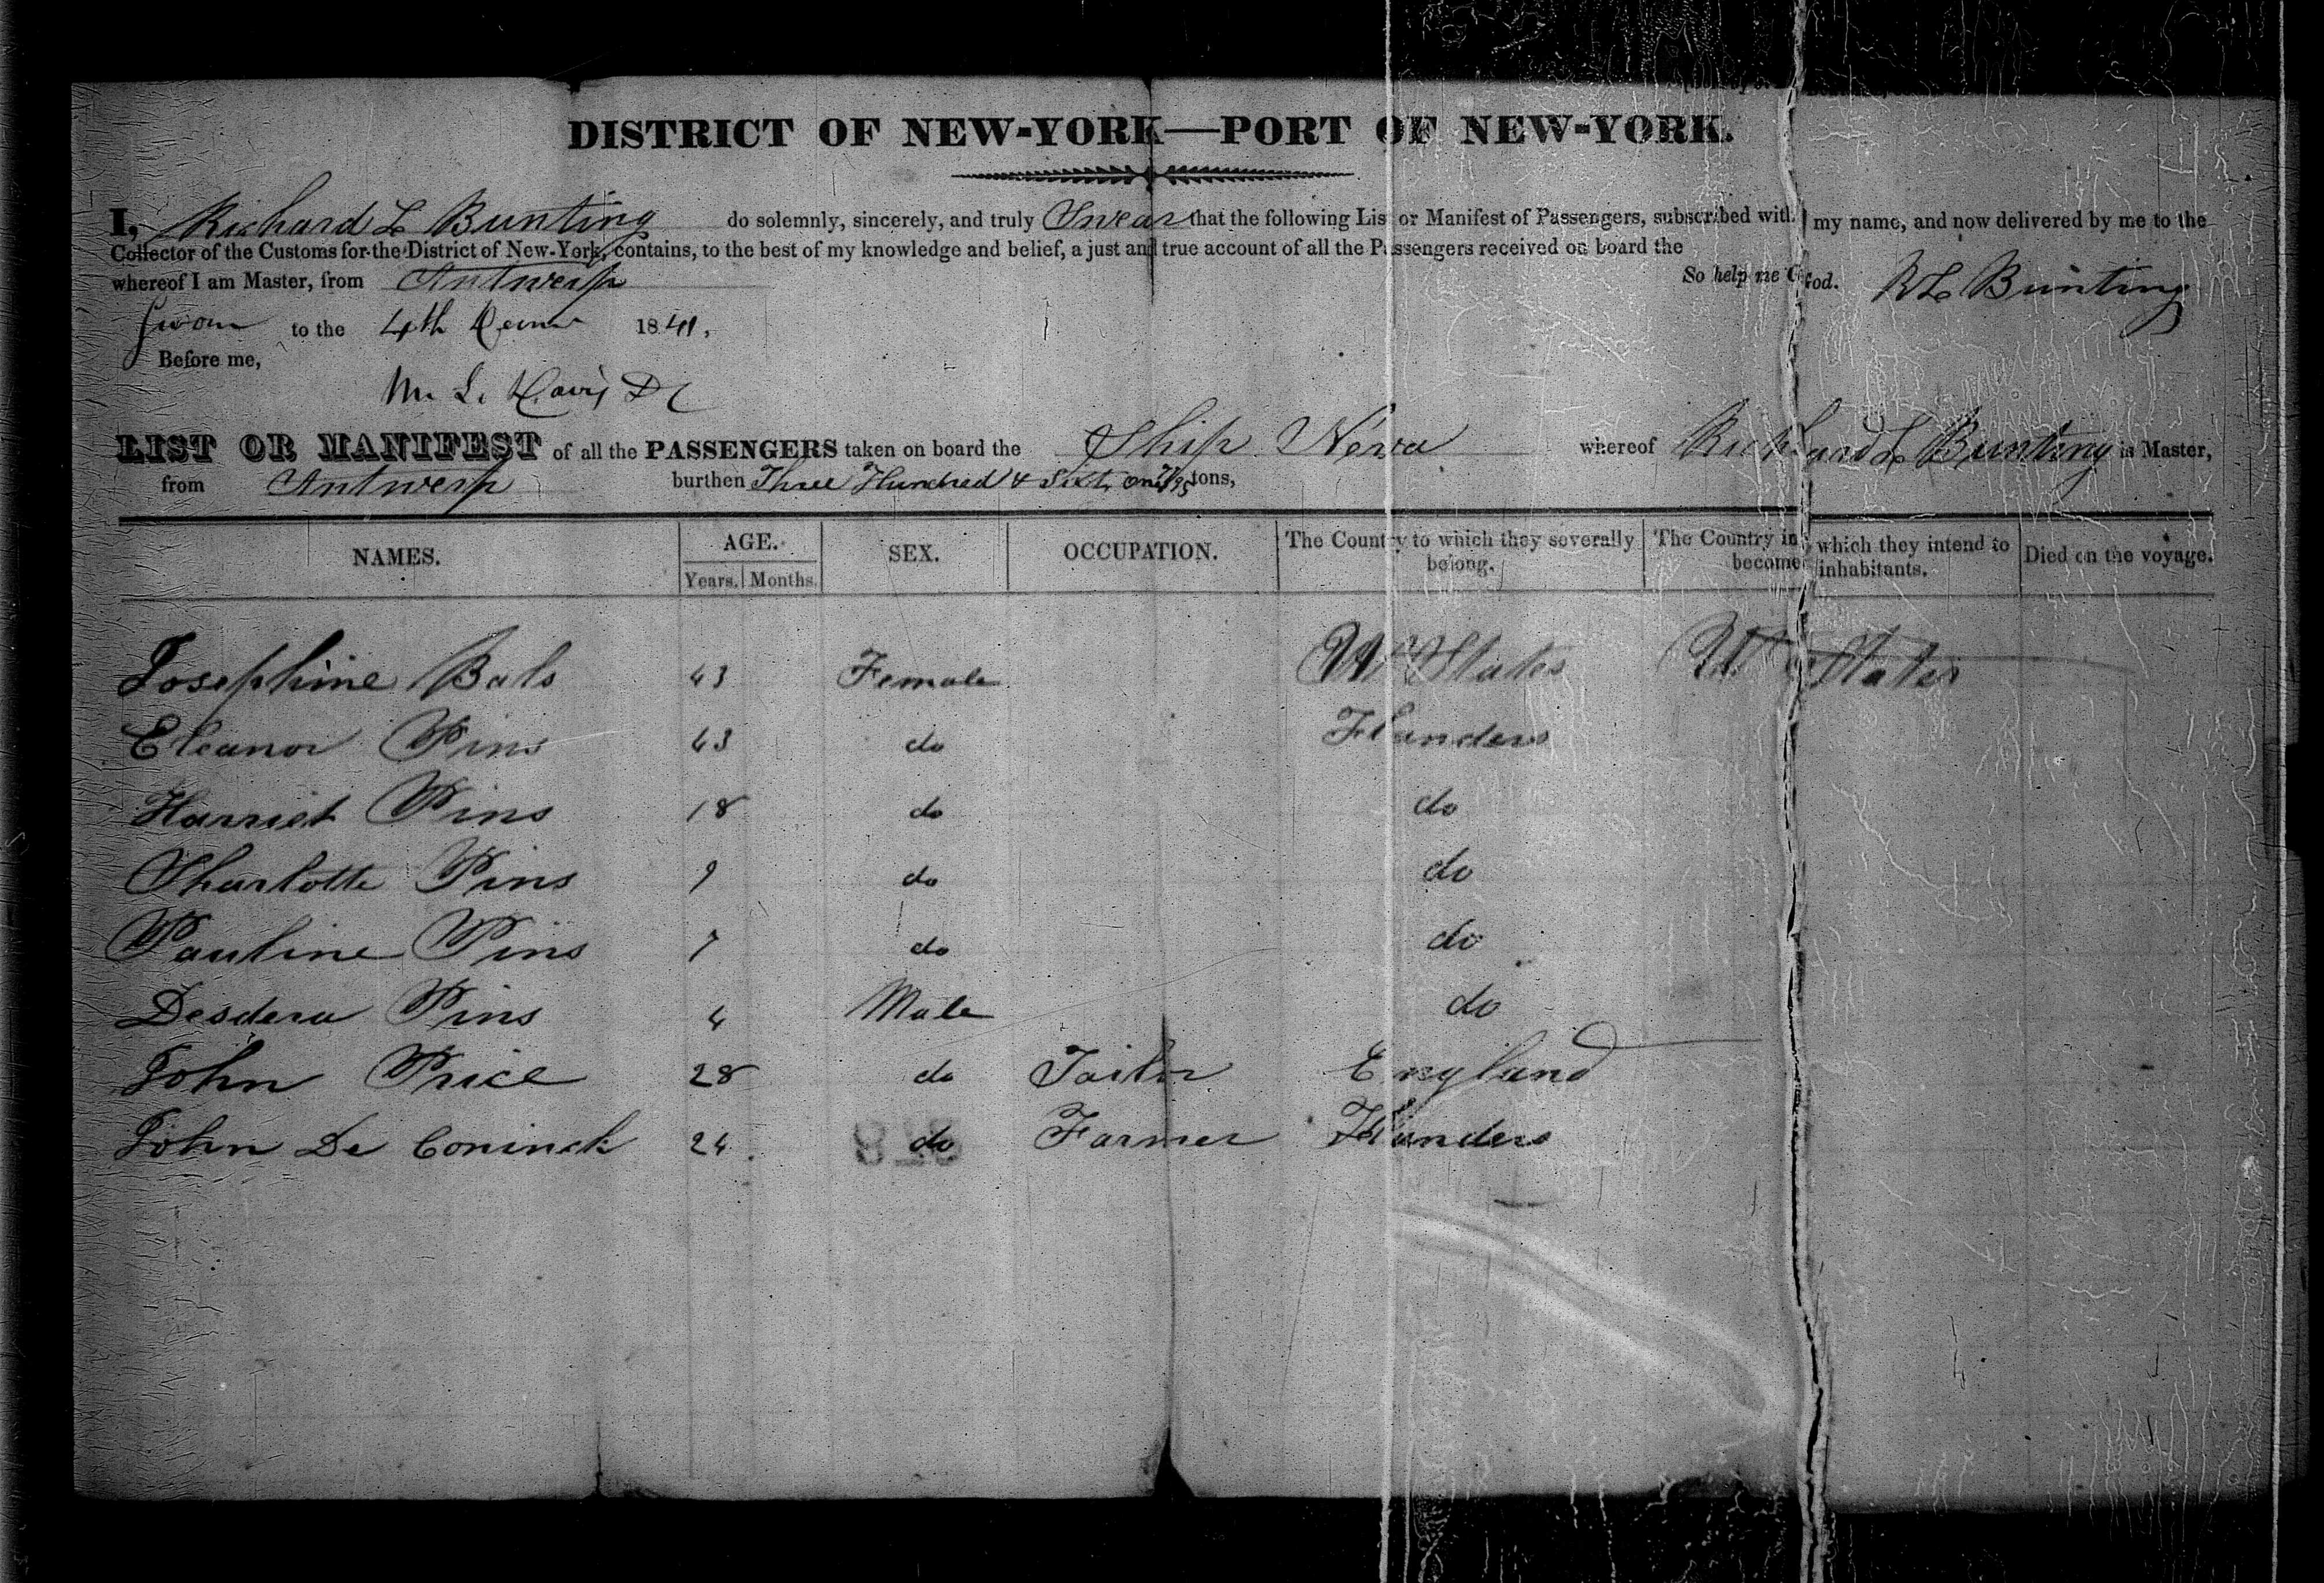 DISTRICT OF NEW-YORK—PORT OF NEW-YORK.
I, Richard L Bunting do solemnly, sincerely, and truly Swear that the following List or Manifest of Passengers, subscribed with my name, and now delivered by me to the
Collector of the Customs for the District of New-York, contains, to the best of my knowledge and belief, a just and true account of all the Passengers received on board the
whereof I am Master, from Antwerp So help me God. R L Bunting
Sworn to the 4th 1841.
Before me,
M. L. Davis D C
LIST OR MANIFEST of all the PASSENGERS taken on board the Ship Neva whereof Richard L Bunting is Master,
from Antwerp burthen Three Hundred & Sixty one tons,
NAMES. AGE. SEX. OCCUPATION. The Country to which they severally belong. The Country in which they intend to become inhabitants. Died on the voyage.
Years. Months.
Josephine Bals 43 Female Ud States Ud States
Eleanor Pins 43 do Flanders
Harriet Pins 18 do do
Charlotte Pins 9 do do
Pauline Pins 7 do do
Desdera Pins 4 Male do
John Price 28 do Tailor England
John De Coninck 24 do Farmer Flanders